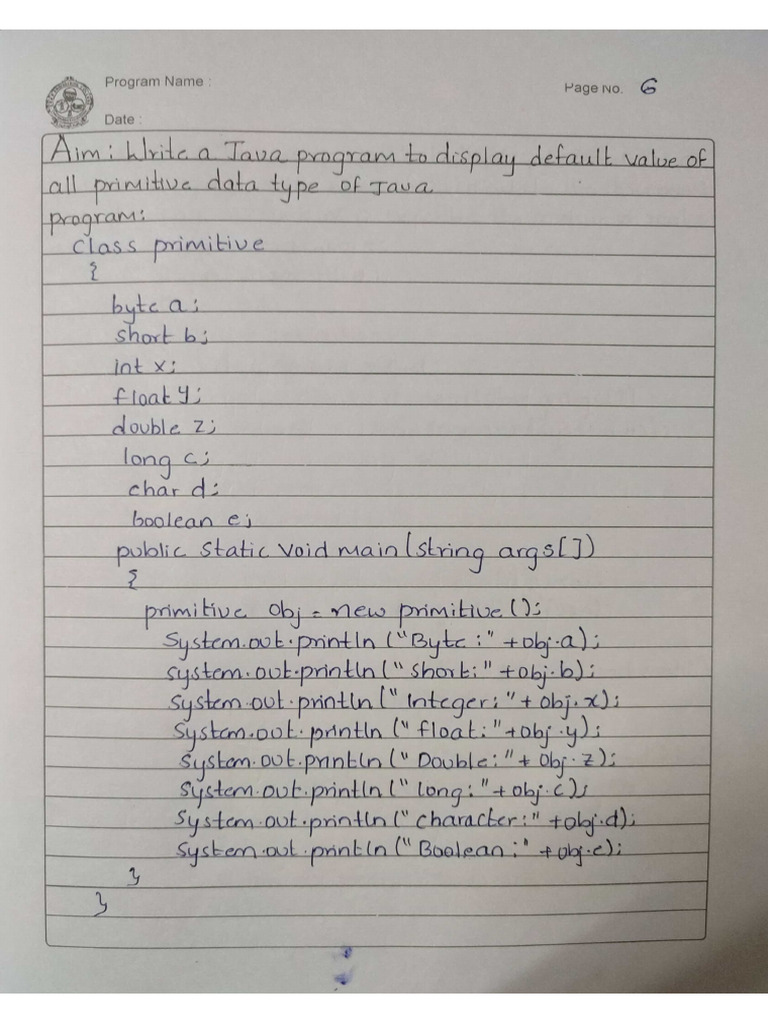 Program Name :
Page No. 6
Date :
Aim: Write a Java program to display default value of
all primitive data type of Java
program:
class primitive
{
byte a;
short b;
int x;
float y;
double z;
long c;
char d;
boolean e;
public static void main(string args[])
{
primitive obj = new primitive();
System.out.println("Byte:" +obj.a);
system.out.println("short:" +obj.b);
System.out.println("Integer:"+ obj.x);
System.out.println("float:"+obj.y);
System.out.println("Double:"+ obj.z);
System.out.println("long:"+obj.c);
System.out.println("character:" +obj.d);
System.out.println("Boolean:" +obj.e);
}
}